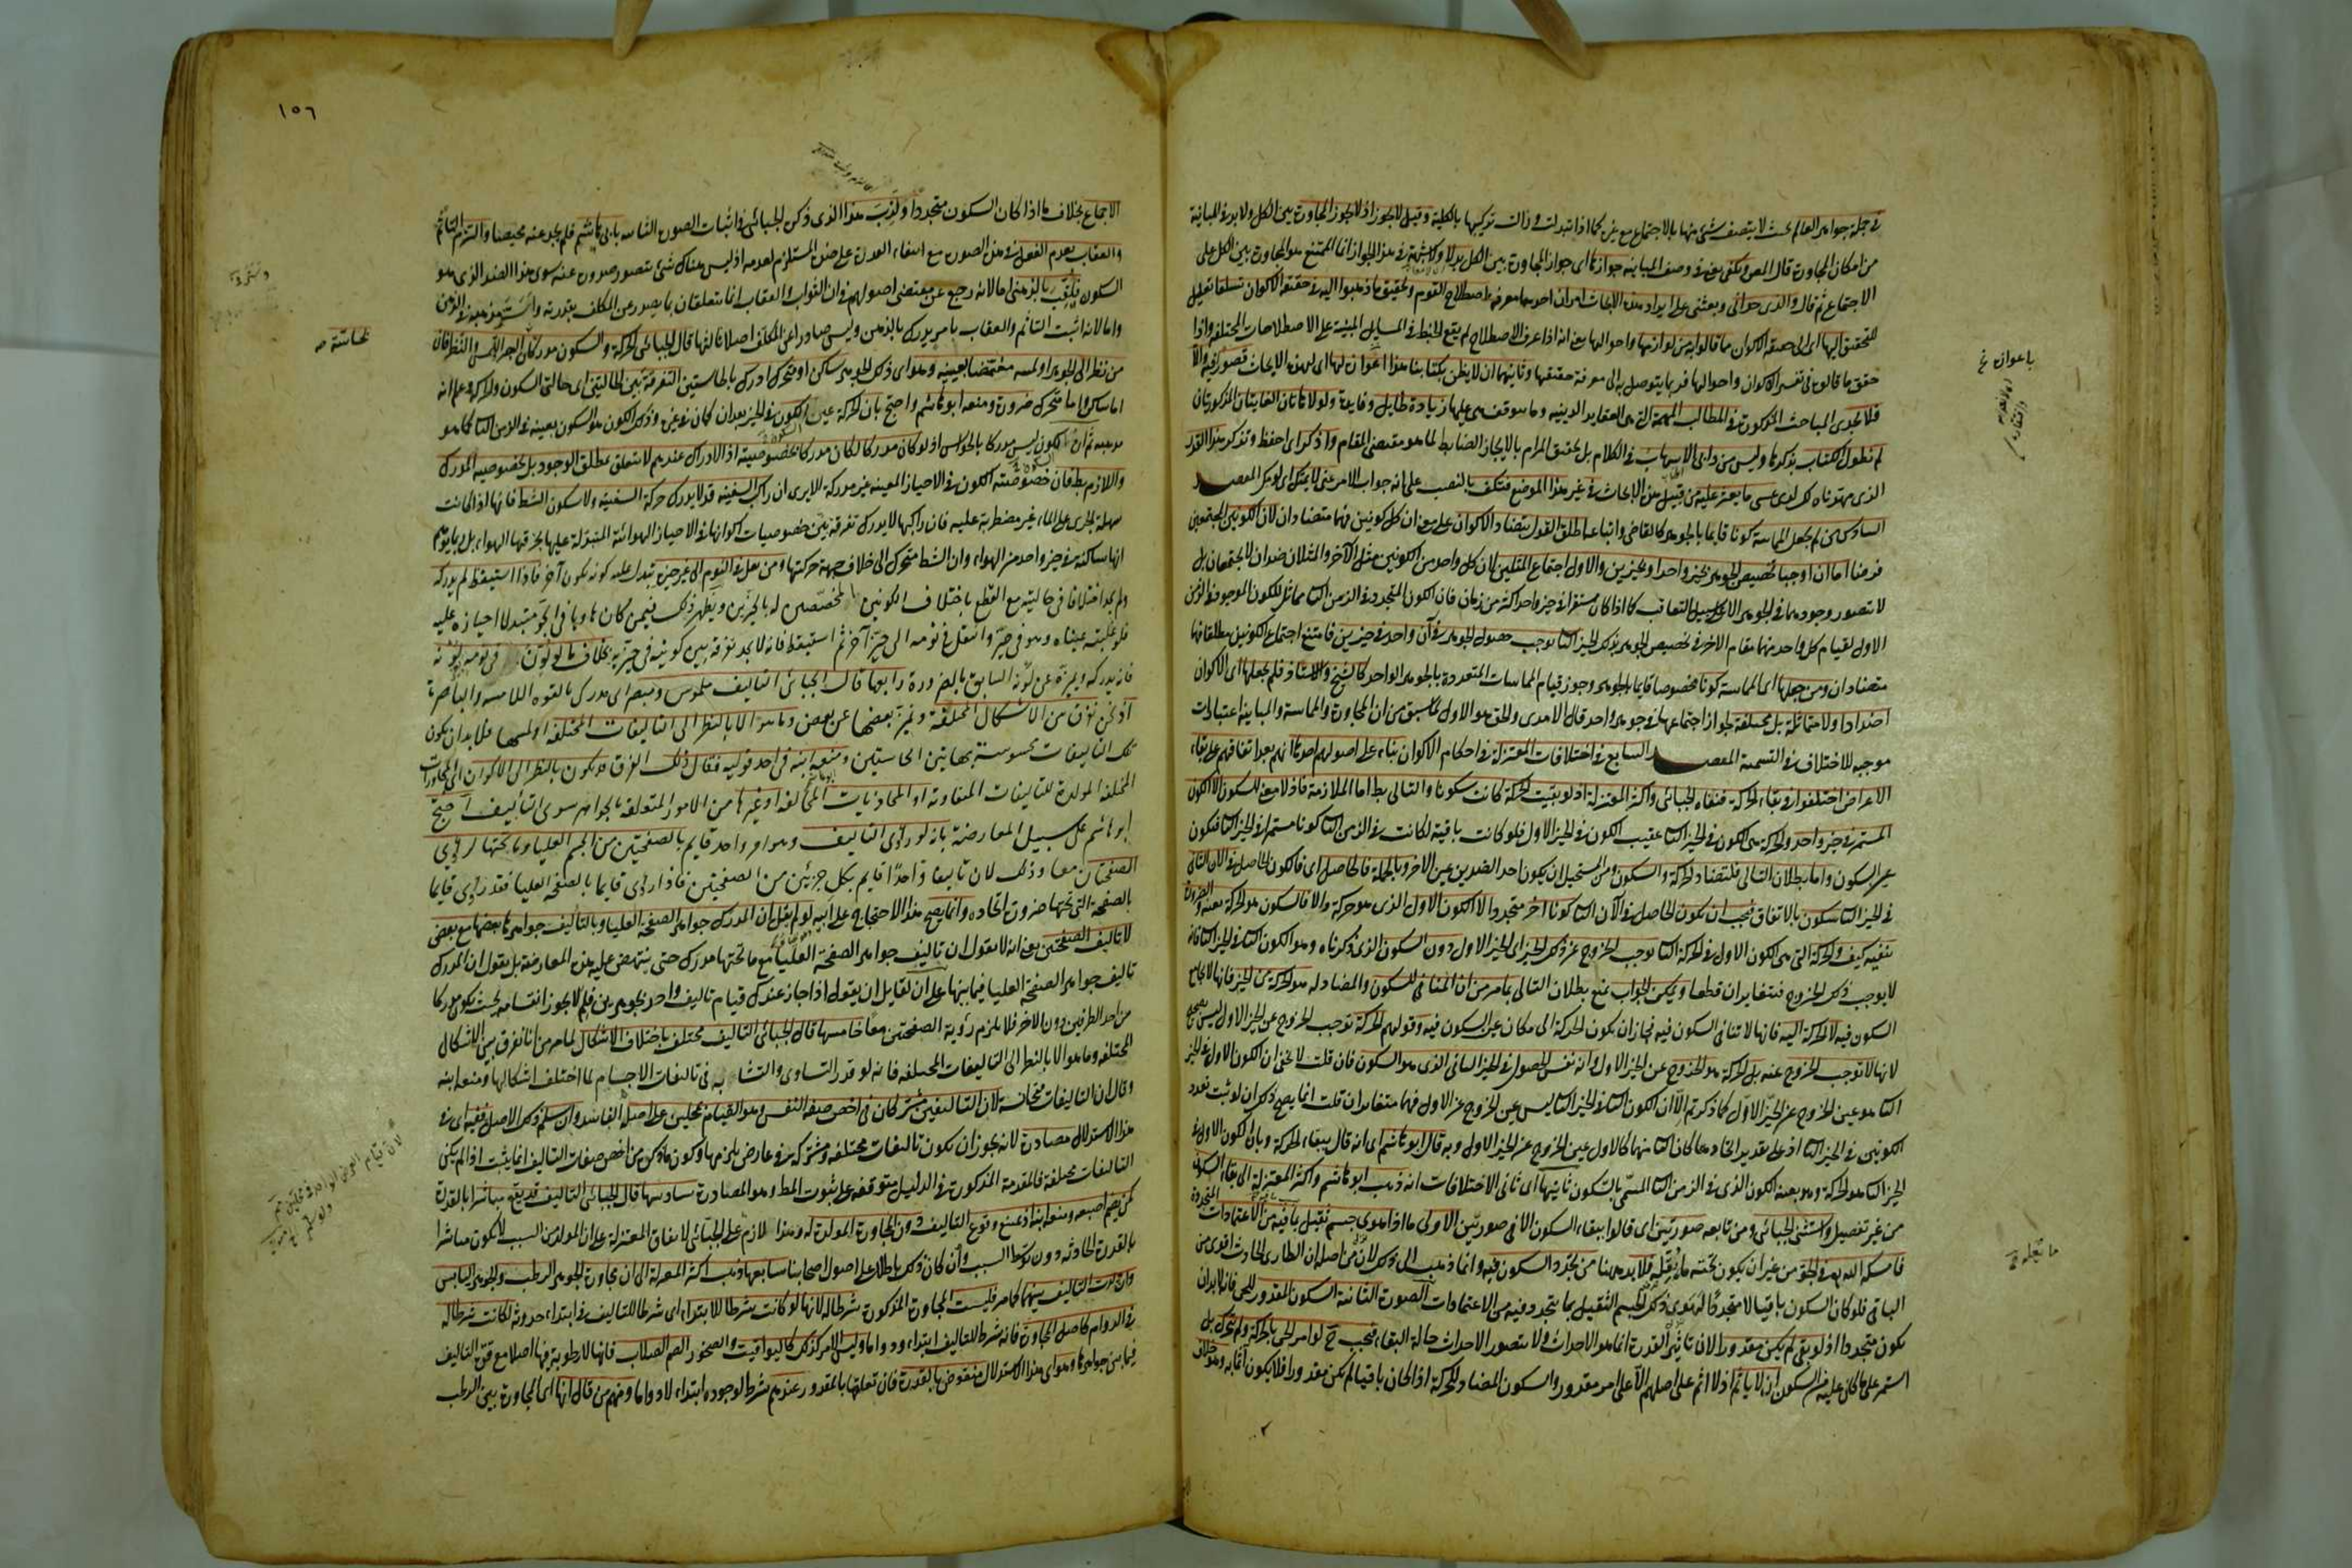 في جملة جواهر العالم بحيث لا يتصف شيء منها بالاجتماع مع غيره كما اذا تبدلت وزالت تركيبها بالكلية وقيل لا يجوز اذ لا يجوز المجاورة بين الكل ولا بد في المباينة
من امكان المجاورة قال المص ويكفي في وصف المباينة جوازها اى جواز المجاورة بين الكل بدلا ولا شبهة في هذا الجواز انما الممتنع هو المجاورة بين الكل على
الاجتماع ثم قال والذي حداني وبعثني على ايراد هذه الابحاث امران احدهما معرفة اصطلاح القوم وتحقيق ما ذهبوا اليه في حقيقة الاكوان
حقق ما قالوه في تفسير الاكوان واحوالها فربما يتوصل به الى معرفة حقيقتها وثانيهما ان لا يظن بكتابنا هذا اعواز لهذه الابحاث قصور فيه والا
فلا يجدي المباحث المذكورة في المطالب المهمة التي هي العقايد الدينية وما يتوقف هي عليها زيادة طايل وفايدة ولولا هاتان الغايتان المذكورتان
لم نطول الكتاب بذكرها وليس من دابي الاسهاب في الكلام بل تحقيق المرام بالايجاز الضابط لما هو مقتضى المقام
السادس من لم يجعل المماسة كونا قايما بالجوهر كالقاضي واتباعه اطلق القول بتضاد الاكوان على معنى ان كل كونين فهما متضادان لان الكونين المجتمعين
فرضنا اما ان اوجبا تخصيص الجوهر بحيز واحد او بحيزين والاول اجتماع المثلين لان كل واحد من الكونين مثل الآخر والمثلان ضدان لا يجتمعان بل
لا يتصور وجودهما في الجوهر الا على سبيل التعاقب كما اذا كان مستقرا في حيز واحد اكثر من زمان فان الكون المتجدد في الزمن الثاني مماثل للكون الموجود في الزمن
الاول لقيام كل واحد منهما مقام الآخر في تخصيص الجوهر بذلك الحيز والثاني يوجب حصول الجوهر في آن واحد في حيزين فامتنع اجتماع الكونين مطلقا فهما
متضادان ومن جعلها اى المماسة كونا مخصوصا قايما بالجوهر وجوز قيام المماسات المتعددة بالجوهر الواحد كالشيخ والاستاذ فلم يجعلها اى الاكوان
اضدادا ولا متماثلة بل مختلفة لجواز اجتماعها في جوهر واحد قال الآمدي والحق هو الاول لما سبق من ان المجاورة والمماسة والمباينة اعتبارات
موجبة للاختلاف في التسمية المقصد السابع في اختلافات المعتزلة في احكام الاكوان بناء على اصولهم احدها انهم بعد اتفاقهم على بقاء
الاعراض اختلفوا في بقاء الحركة فنفاه الجبائي واكثر المعتزلة اذ لو بقيت الحركة كانت سكونا والتالي بط اما الملازمة فاذ لا معنى للسكون الا الكون
المستمر في حيز واحد والحركة هي الكون في الحيز الثاني عقيب الكون في الحيز الاول فلو كانت باقية لكانت في الزمن الثاني كونا مستمرا في الحيز الثاني فتكون
عين السكون واما بطلان التالي فلتضاد الحركة والسكون ومن المستحيل ان يكون احد الضدين عين الاخر وبالجملة فالحاصل اى فالكون الحاصل في الآن الثاني
في الحيز الثاني سكون بالاتفاق فيجب ان يكون الحاصل في الآن الثاني كونا اخر متجددا لا الكون الاول الذي هو حركة والا فالسكون هو الحركة بعينه والضرورة
تنفيه كيف والحركة التي هي الكون الاول في الحركة الثاني توجب الخروج عن ذلك الحيز اى الحيز الاول دون السكون الذي ذكرناه وهو الكون الثاني في الحيز الثاني فانه
لا يوجب ذلك الخروج فيتغايران قطعا ويمكن الجواب بمنع بطلان التالي بما مر من ان المنافي للسكون والمضاد له هو الحركة من الحيز فانها لا تجامع
السكون فيه لا الحركة اليه فانها لا تنافي السكون فيه فجاز ان يكون الحركة الى مكان عين السكون فيه وقولهم الحركة توجب الخروج عن الحيز الاول ليس بصحيح
لانها لا توجب الخروج عنه بل الحركة هو الخروج عن الحيز الاول وانه نفس الحصول في الحيز الثاني الذي هو السكون فان قلت لا يخفى ان الكون الاول في الحيز
الثاني هو عين الخروج عن الحيز الاول كما ذكرتم الا ان الكون الثاني في الحيز الثاني ليس عين الخروج عن الاول فهما متغايران قلت انما يصح ذلك ان لو ثبت تعدد
الكونين في الحيز الثاني اذ على تقدير اتحادهما كان الثاني منهما كالاول عين الخروج عن الحيز الاول وبه قال ابو هاشم اى انه قال ببقاء الحركة وبان الكون الاول في
الحيز الثاني هو الحركة وهو بعينه الكون الذي في الزمن الثاني المسمى بالسكون ثانيها اى ثاني الاختلافات انه ذهب ابو هاشم واكثر المعتزلة الى بقاء السكون
من غير تفصيل واستثنى الجبائي ومن تابعه صورتين اى قالوا ببقاء السكون الا في صورتين الاولى ما اذا هوى جسم ثقيل بما فيه من الاعتمادات المتجددة
فامسكه الله تع في الجو من غير ان يكون تحته ما يقله فلا بد ههنا من تجدد السكون فيه وانما ذهب الى ذلك لان من اصله ان الطارى الحادث اقوى من
الباقي فلو كان السكون باقيا لا متجددا لهوى ذلك الجسم الثقيل بما يتجدد فيه من الاعتمادات الصورة الثانية السكون المقدور للحي فانه لا بد ان
يكون متجددا اذ لو بقي لم يكن مقدورا لان تأثير القدرة انما هو الاحداث ولا يتصور الاحداث حالة البقاء فيجب ح لو امر الحي بالحركة ولم يتحرك بل
استمر على ما كان عليه من السكون ان لا ياثم اذ لا اثم على اصلهم الا على امر مقدور والسكون المضاد للحركة اذا كان باقيا لم يكن مقدورا فلا يكون آثما به وهو خلاف
١٥٦
الاجماع بخلاف ما اذا كان السكون متجددا ولقب هذا الذي ذكره الجبائي في اثبات الصورة الثانية بابي هاشم فلم يجد عنه محيصا والتزم التأثم
والعقاب بعدم الفعل في هذه الصورة مع انتفاء القدرة على ضده المستلزم لعدمه اذ ليس هناك شئ يتصور صدوره عنه سوى هذا الضد الذي هو
السكون فلقب بالذمي اما لانه رجع عن مقتضى اصولهم في ان الثواب والعقاب انما يتعلقان بما يصدر عن المكلف بقدرته
واما لانه اثبت التأثم والعقاب بامر يدرك بالذهن وليس صادرا عن المكلف اصلا ثالثها قال الجبائي الحركة والسكون مدركان بالبصر واللمس فان
من نظر الى الجوهر او لمسه مغتمضا بعينيه وهو اى ذلك الجوهر ساكن او متحرك ادرك بالحاستين التفرقة بين الحالتين اى حالتي السكون والحركة وعلم انه
اما ساكن واما متحرك ضرورة ومنعه ابو هاشم واحتج بان الحركة عين الكون في الحيز بعد ان كان في غيره وذلك الكون هو السكون بعينه في الزمن الثاني كما هو
مذهبه ثم ان الكون ليس مدركا بالحواس اذ لو كان مدركا لكان مدركا بخصوصيته اذ الادراك عندهم لا يتعلق بمطلق الوجود بل بخصوصية المدرك
واللازم بط فان خصوصية الكون في الاحياز المعينة غير مدركة الا يرى ان راكب السفينة قد لا يدرك حركة السفينة ولا سكون الشط فانها اذا كانت
سهلة الجرى على الماء غير مضطربة عليه فان راكبها لا يدرك تفرقة بين خصوصيات اكوانها في الاحياز الهوائية المتبدلة عليها بخرقها الهواء بل ربما يتوهم
انها ساكنة في حيز واحد من الهواء وان الشط متحرك الى خلاف جهة حركتها ومن نقل في النوم الى غير حيزه تبدل عليه كونه بكون آخر فاذا استيقظ لم يدركه
ولم يجد اختلافا في حالتيه مع القطع باختلاف الكونين المخصصين له بالحيزين ويظهر ذلك فيمن كان هاويا في الجو متبدلا احيازه عليه
فلو غلبته عيناه وهو في حيز وانتقل في نومه الى حيز آخر ثم استيقظ فانه لا يجد تفرقة بين كونيه في حيزيه بخلاف ما لو لون في نومه بلونه
فانه يدركه ويميزه عن لونه السابق بالضرورة رابعها قال الجبائي التاليف ملموس ومبصر اى مدرك بالقوة اللامسة والباصرة
اذ نحن نفرق بين الاشكال المختلفة ونميز بعضها عن بعض وما هو الا بالنظر الى التاليفات المختلفة او لمسها فلا بد ان يكون
تلك التاليفات محسوسة بهاتين الحاستين ومنعه ابنه في احد قوليه فقال ذلك الفرق قد يكون بالنظر الى الاكوان اى المجاورات
المختلفة المولدة للتاليفات المتفاوتة او المحاذيات المختلفة او غيرها من الامور المتعلقة بالجواهر سوى التاليف احتج
ابو هاشم على سبيل المعارضة بانه لو رئى التاليف وهو امر واحد قايم بالصفحتين من الجسم العليا وما تحتها لرئى
الصفحتان معا وذلك لان تاليفا واحدا قايم بكل جزئين من الصفحتين فاذا رئى قايما بالصفحة العليا فقد رئى قايما
بالصفحة التي تحتها ضرورة اتحاده وانما يصح هذا الاحتجاج على ابيه لو لم يقل ان المدرك جواهر الصفحة العليا وبالتاليف جواهرها بعضها مع بعض
لا تاليف الصفحتين يعني انه لا يقول ان تاليف جواهر الصفحة العليا مع ما تحتها مدرك حتى ينتهض عليه هذه المعارضة بل يقول ان المدرك
تاليف جواهر الصفحة العليا فيما بينها على ان لقايل ان يقول اذا جاز عندك قيام تاليف واحد بجوهرين فلم لا يجوز انقسامه بحيث يكون مدركا
من احد الطرفين دون الاخر فلا يلزم رؤية الصفحتين معا خامسها قال الجبائي التاليف مختلف باختلاف الاشكال لما مر من انا نفرق بين الاشكال
المختلفة وما هو الا بالنظر الى التاليفات المختلفة فانه لو قدر التساوي والتشابه في تاليفات الاجسام لما اختلف اشكالها ومنعه ابنه
وقال ان التاليفات متجانسة لان التاليفين مشتركان في اخص صفة النفس وهو القيام بمحلين على اصله الفاسد وان سلم ذلك الاصل ففيه اى في
هذا الاستدلال مصادرة لانه يجوز ان يكون تاليفات مختلفة ومشتركة في عارض يلزمها وكون ما ذكر من اخص صفات التاليف انما يثبت اذا لم يكن
التاليفات مختلفة فالمقدمة المذكورة في الدليل متوقفة على ثبوت المط وهو المصادرة سادسها قال الجبائي التاليف قد يقع مباشرا بالقدرة
كمن يضم اصبعيه ومنعه ابنه اذ يمتنع وقوع التاليف دون المجاورة المولدة له وهذا لازم على الجبائي لاتفاق المعتزلة على ان المولد من السبب لا يكون مباشرا
بالقدرة الحادثة دون توسط السبب وان كان ذلك باطلا على اصول اصحابنا سابعها ذهب اكثر المعتزلة الى ان مجاورة الجوهر الرطب والجوهر اليابس
وان ولدت التاليف بينهما كما مر فليست المجاورة المذكورة شرطا له لانها لو كانت شرطا للابتداء اى شرطا للتاليف في ابتداء حدوثه لكانت شرطا له
في الدوام كاصل المجاورة فانه شرط للتاليف ابتداء ودواما وليس الامر كذلك كاليواقيت والصخور الصم الصلاب فانها لا رطوبة فيها اصلا مع قوة التاليف
فيما بين جواهرها وهو اى هذا الاستدلال منقوض بالقدرة فان تعلقها بالمقدور عندهم شرط لوجوده ابتداء لا دواما ومنهم من قال انها اى المجاورة بين الرطب